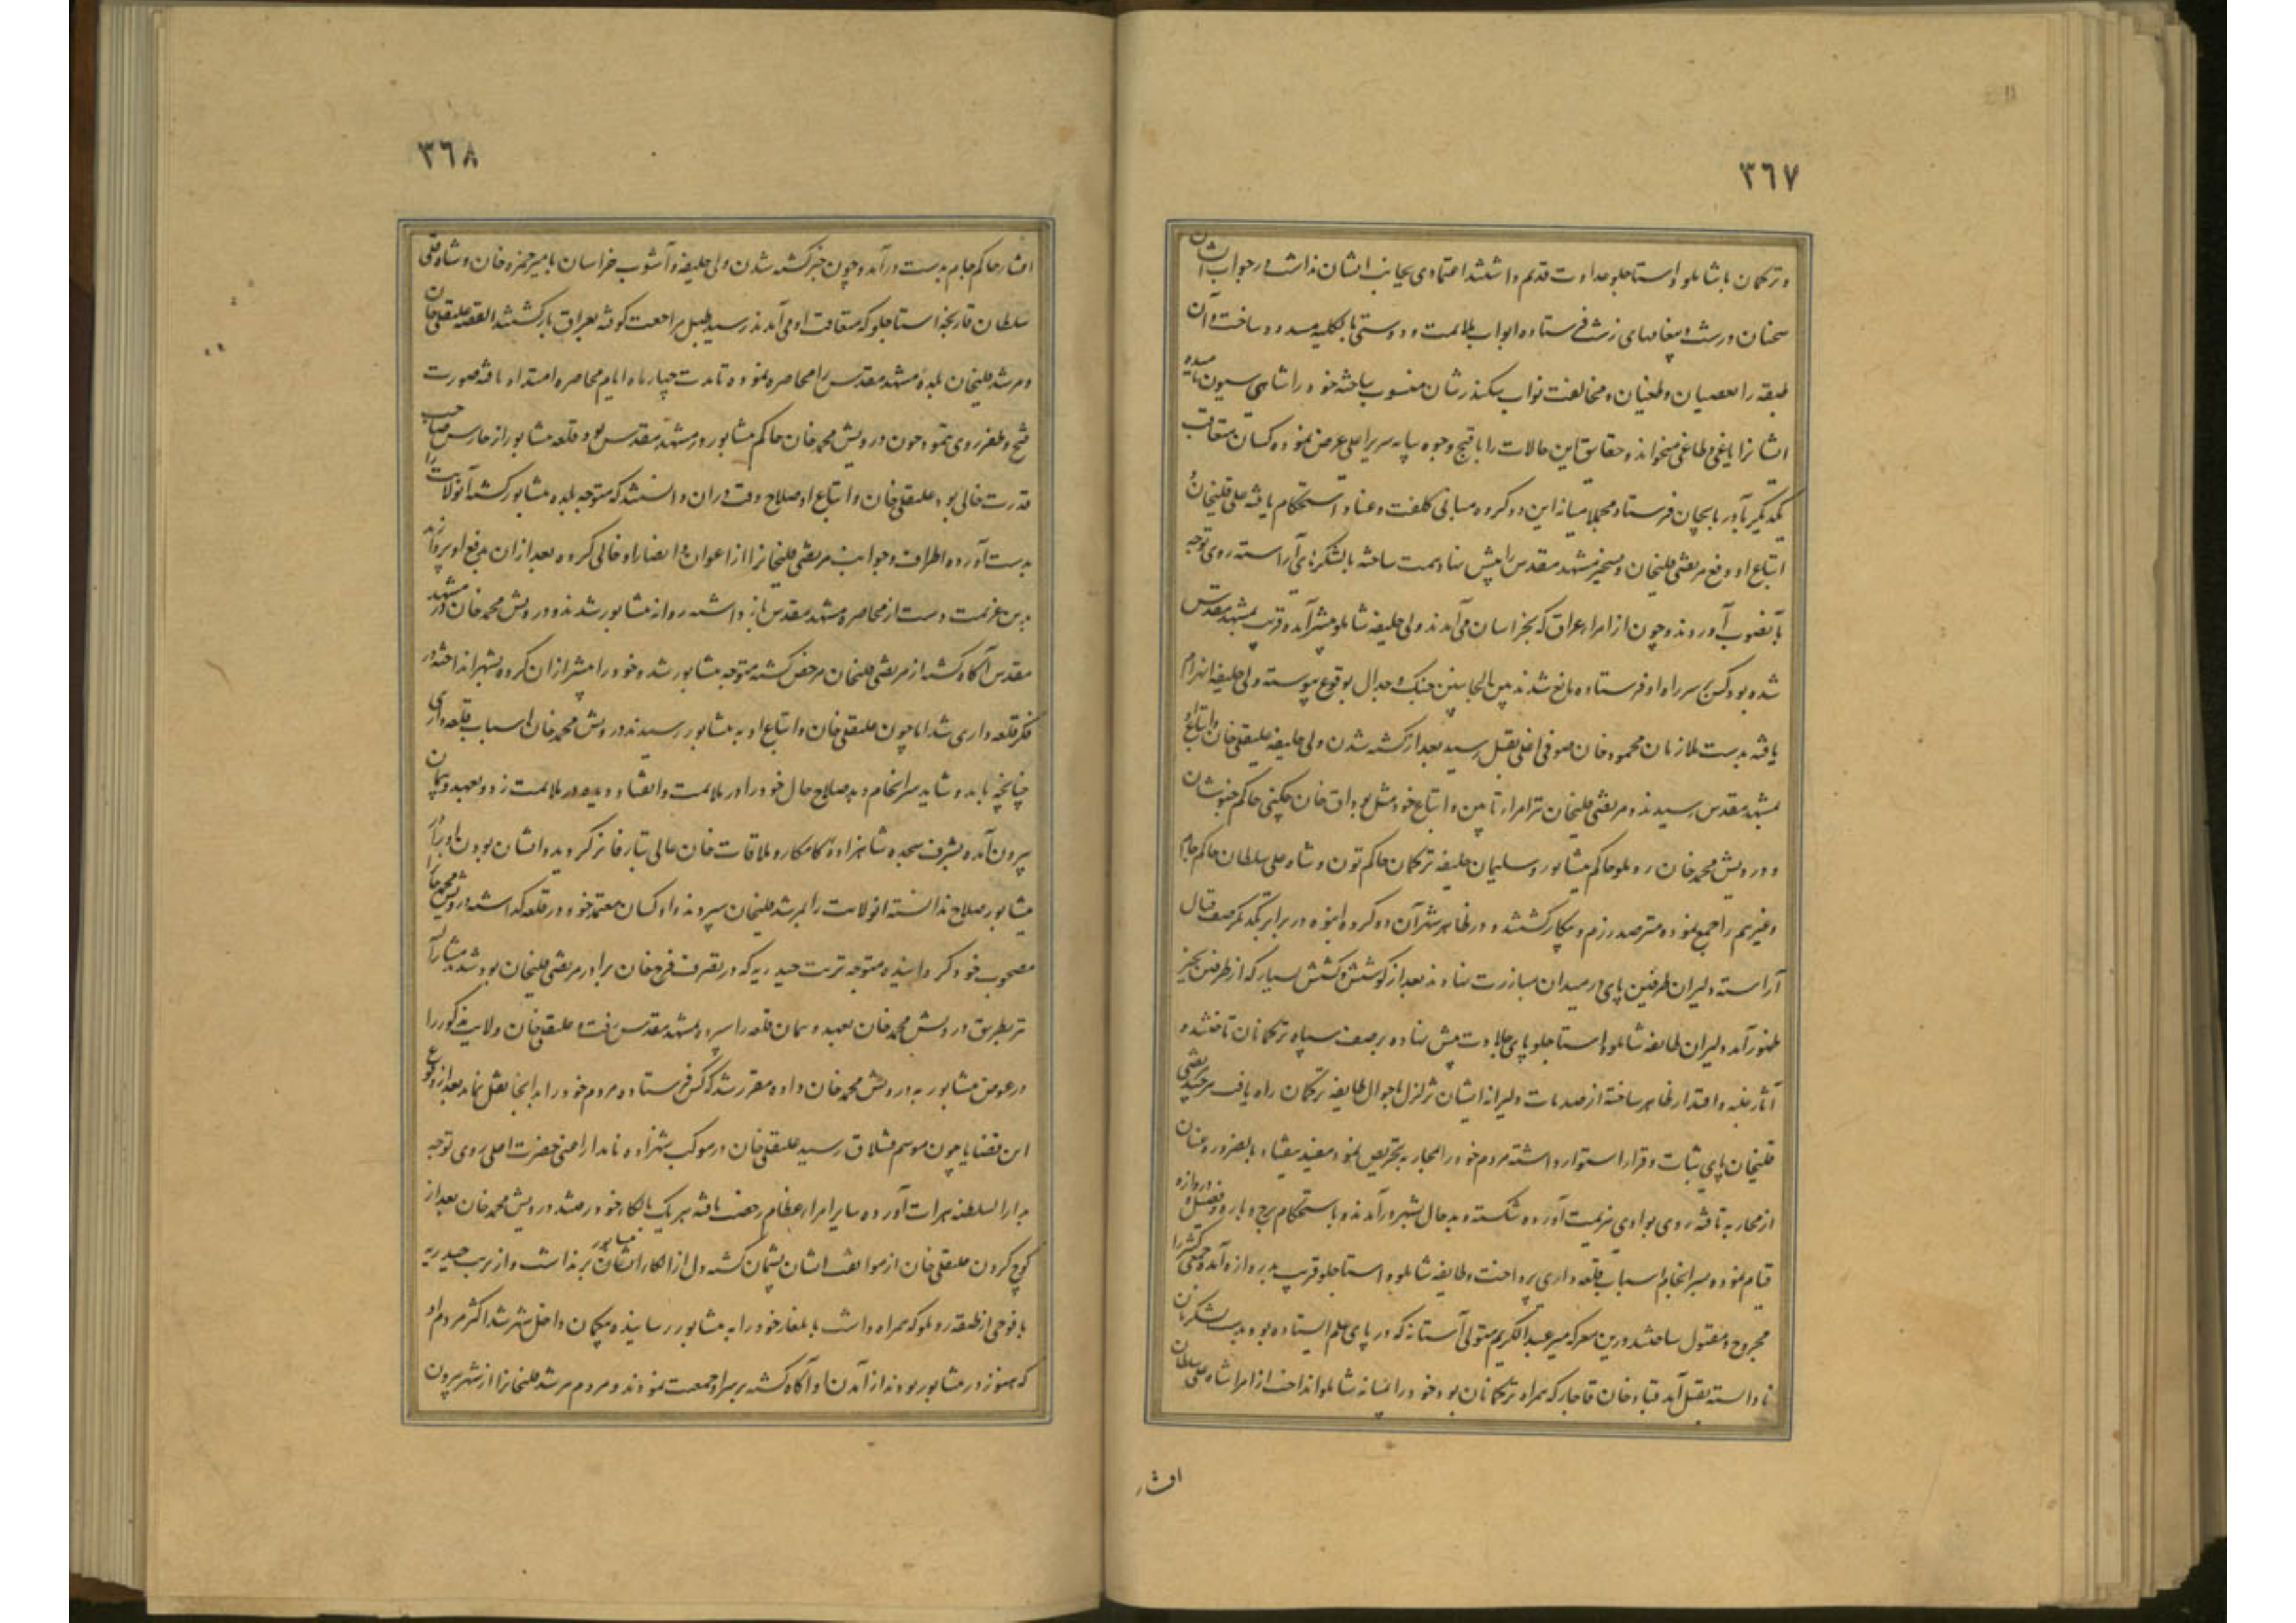 ٣٦٧
و ترکمان با شاملو و استاجلو عداوت قدیم داشتند اعتمادی بجانب ایشان نداشت در جواب ایشان
سخنان درشت و پیغامهای زشت فرستاده ابواب ملایمت و دوستی بالکلیه مسدود ساخت و آن
طبقه را بعصیان و طغیان و مخالفت نواب سکندرشان منسوب ساخته خود را شاهی سیون نامیده
ایشانرا یاغی و طاغی میخواند و حقایق این حالات را باقبح وجوه بپایه سریر اعلی عرض نموده کسان متعاقب
یکدیگر بآذربایجان فرستاد مجملا میانه این دو گروه مبانی کلفت و عناد استحکام یافته علی قلیخان و
اتباع او دفع مرتضی قلیخان و تسخیر مشهد مقدس را پیش نهاد همت ساخته با لشکرهای آراسته روی توجه
بآنصوب آوردند و چون از امراء عراق که بخراسان می آمدند ولی خلیفه شاملو پیشتر آمده قریب بمشهد مقدس
شده بود کس بر سر راه او فرستاده مانع شدند بین الجانبین جنگ و جدال بوقوع پیوسته ولی خلیفه انهزام
یافته بدست ملازمان محمود خان صوفی اغلی بقتل رسید بعد از کشته شدن ولی خلیفه علیقلی خان و اتباع او
بمشهد مقدس رسیدند و مرتضی قلیخان نیز امراء تابین و اتباع خود مثل بوداق خان چکنی حاکم خبوشان
و درویش محمد خان روملو حاکم نیشابور و سلیمان خلیفه ترکمان حاکم تون و شاه علی سلطان حاکم جام
و غیرهم را جمع نموده مترصد رزم و پیکار گشتند و در ظاهر شهر آن دو گروه انبوه در برابر یکدیگر صف قتال
آراسته دلیران طرفین پای در میدان مبارزت نهادند بعد از کوشش و کشش بسیار که از طرفین بحیز
ظهور آمد دلیران طایفه شاملو و استاجلو پای جلادت پیش نهاده بر صف سپاه ترکمانان تاختند و
آثار غلبه و اقتدار ظاهر ساخته از صدمات دلیرانه ایشان تزلزل باحوال طایفه ترکمان راه یافت هر چند مرتضی
قلیخان پای ثبات و قرار استوار داشته مردم خود را بمحاربه تحریض نمود مفید نیفتاد بالضروره عنان
از محاربه تافته روی بوادی هزیمت آورده شکسته و بدحال بشهر درآمدند و باستحکام برج و باره و فصیل و دروازه
قیام نموده بسرانجام اسباب قلعه داری پرداخت و طایفه شاملو و استاجلو قریب بدروازه آمده جمعی کثیر را
مجروح و مقتول ساختند درین معرکه میر عبدالکریم متولی آستانه که در پای علم ایستاده بود بدست لشکریان
نادانسته بقتل آمد قباد خان قاجار که همراه ترکمانان بود خود را بمیانه شاملو انداخت از امرا شاه علی سلطان
افشار
٣٦٨
افشار حاکم جام بدست درآمد و چون خبر کشته شدن ولی خلیفه و آشوب خراسان بامیر حمزه خان و شاه قلی
سلطان قارنجه استاجلو که متعاقب او می آمدند رسید طبل مراجعت کوفته بعراق بازگشتند القصه علیقلی خان
و مرشد قلیخان بلده مشهد مقدس را محاصره نموده تا مدت چهار ماه ایام محاصره امتداد یافته صورت
فتح و ظفر روی ننمود چون درویش محمد خان حاکم نیشابور در مشهد مقدس بود و قلعه نیشابور از حارس صاحب
قدرت خالی بود علیقلی خان و اتباع او صلاح وقت در آن دانستند که متوجه بلده نیشابور گشته آنولایت را
بدست آورده اطراف و جوانب مرتضی قلیخانرا از اعوان و انصار او خالی کرده بعد از آن بدفع او پردازند
بدین عزیمت دست از محاصره مشهد مقدس باز داشته روانه نیشابور شدند و درویش محمد خان در مشهد
مقدس آگاه گشته از مرتضی قلیخان مرخص گشته متوجه نیشابور شد و خود را پیشتر از آن گروه بشهر انداخته در
فکر قلعه داری شد اما چون علیقلی خان و اتباع او به نیشابور رسیدند درویش محمد خان اسباب قلعه داری
چنانچه باید و شاید سرانجام ندید صلاح حال خود را در ملایمت و انقیاد دیده در ملایمت زد و بعهد و پیمان
بیرون آمده بشرف سجده شاهزاده کامکار و ملاقات خان عالی تبار فایز گردید و ایشان بودن او را در
نیشابور صلاح ندانسته آنولایت را بمرشد قلیخان سپردند و او کسان معتمد خود در قلعه گذاشته درویش محمد خان را
مصحوب خود گردانیده متوجه تربت حیدریه که در تصرف فرخ خان برادر مرتضی قلیخان بود شد مشارالیه
نیز بطریق درویش محمد خان بعهد و پیمان قلعه را سپرده بمشهد مقدس رفت و علیقلی خان ولایت مذکور را
در عوض نیشابور به درویش محمد خان داده مقرر شد که کس فرستاده مردم خود را بدانجا نقل نماید بعد از وقوع
این قضایا چون موسم قشلاق رسید علیقلی خان در موکب شهزاده نامدار اعنی حضرت اعلی روی توجه
بدارالسلطنه هرات آورده سایر امراء عظام رخصت یافته هر یک بالکاء خود رفتند درویش محمد خان بعد از
کوچ کردن علیقلی خان از موافقت ایشان پشیمان گشته دل از الکاء نیشابور برنداشت و از تربت حیدریه
با فوجی از طبقه روملو که همراه داشت بایلغار خود را به نیشابور رسانیده بیگمان داخل شهر شد اکثر مردم او
که هنوز در نیشابور بودند از آمدن او آگاه گشته بر سر او جمعیت نمودند و مردم مرشد قلیخانرا از شهر بیرون